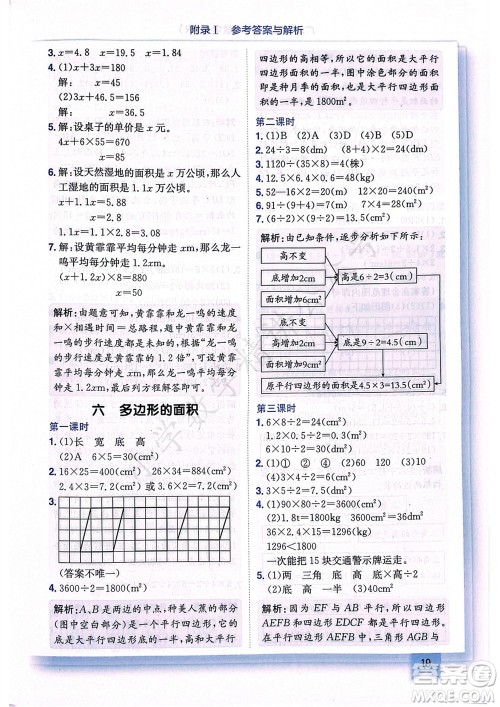 附录Ⅰ 参考答案与解析
3. x=4.8 x=19.5 x=1.84
4. (1)x+3x=180
解: x=45
(2)x+x÷10=40.15
解: x=36.5
5. 解:设桌子的单价是 x 元。
4x+6×55=670
x=85
6. 解:设天然湿地的面积是 x 万公顷,那么人
工湿地的面积是 1.1x 万公顷。
x+1.1x=10.08
x=5.88
7. 解:设黄霏霏平均每分钟走 xm,那么龙一
鸣平均每分钟走 1.2xm。
(x+1.2x)×8=880
x=50
解析:由题意可知,黄霏霏和龙一鸣的速度
和×相遇时间=总路程,题中黄霏霏和龙一
鸣的步行速度都是未知的,可根据“龙一鸣
的步行速度是黄霏霏的 1.2 倍”,设黄霏霏
平均每分钟走 xm,则龙一鸣平均每分钟走
1.2xm,最后列方程解答即可。
六 多边形的面积
第一课时
1. (1)长 宽 底 高
(2)A 6×5=30(cm²)
2. 16×25=400(cm²) 26×34=884(cm²)
2.4×3=7.2(cm²) 2×3.6=7.2(cm²)
3.
(答案不唯一)
4. 3600÷2=1800(m²)
解析:A,B 是两边的中点,种美人蕉的部分
(图中空白部分)也是一个平行四边形,它的
底是大平行四边形底的一半,高与大平行
四边形的高相等,所以它的面积是大平行
四边形面积的一半,图中涂色部分的面积
也是大平行四边形面积的一半,是 1800m²。
第二课时
1. (1)B (2)A (3)D (4)B
2. 24÷3=8(dm) 24÷4=6(dm)
3. 1120÷(35×8)=4(株)
4. 12.5×6.4×0.6=48(kg)
5. 52-16×2=20(m) 20×12=240(m²)
6. 91÷(6+7)=7(m) 7×4=28(m²)
7. (6÷2)×(9÷2)=13.5(cm²)
解析:由已知条件,逐步分析如下:
高不变
底增加2cm
面积增加6cm²
高是6÷2=3(cm)
底不变
高增加2cm
面积增加9cm²
底是9÷2=4.5(cm)
原平行四边形的面积是4.5×3=13.5(cm²)
第三课时
1. 6×8÷2=24(cm²)
1.2×0.5÷2=0.3(m²)
2. (1)① ② ④ (2)底 高
3. (1)B (2)A
4. (1)90×80÷2=3600(cm²)
(2)1.8t=1800kg
36×2.4×15=1296(kg)
1296<1800
一次能把 15 块交通警示牌运走。
5. (1)两 三角 底 高 底×高÷2
(2)底 高 一半 (3)40cm²
解析:因为 EF 与 AB 平行,所以四边形
AEFB 和四边形 EDCF 都是平行四边形。
在平行四边形 AEFB 中,三角形 AGB 与
19
答案圈